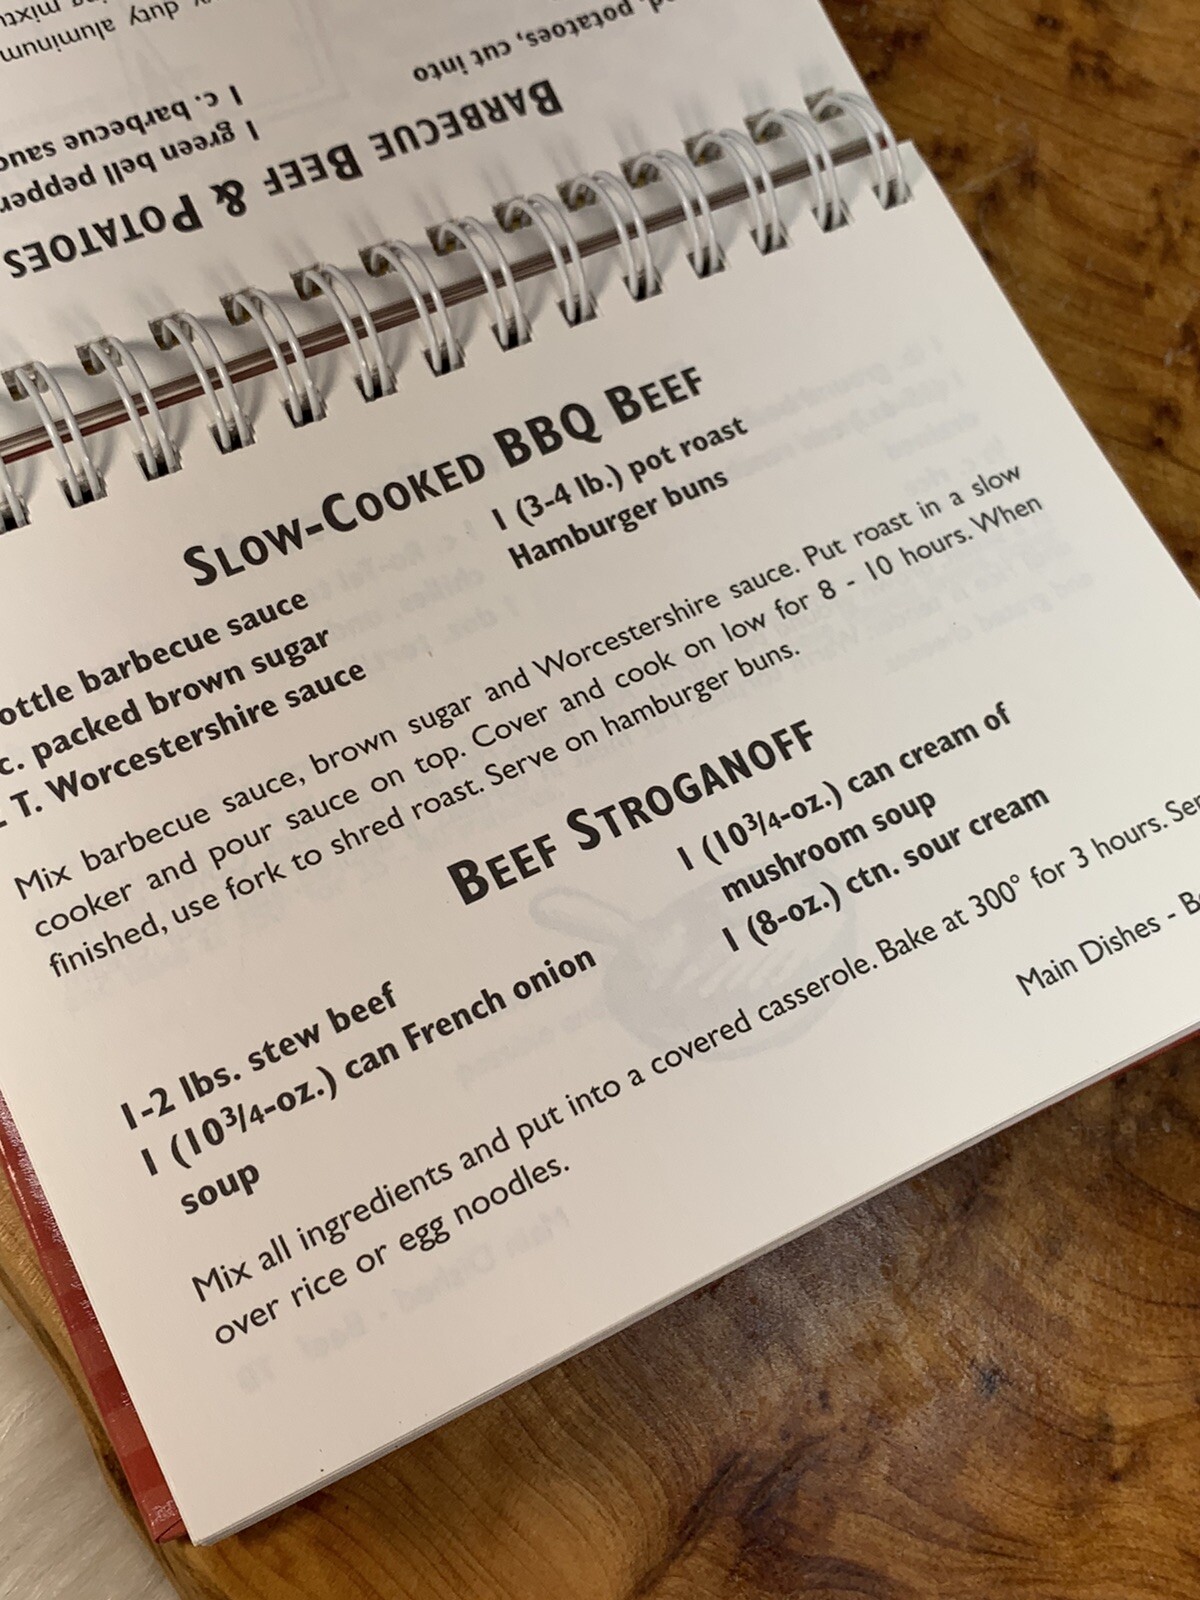 BARBECUE BEEF & POTATOES
1 green bell pepper
1 c. barbecue
potatoes, cut into
duty aluminum
SLOW-COOKED BBQ BEEF
barbecue sauce
c. packed brown sugar
T. Worcestershire sauce
1 (3-4 lb.) pot roast
Hamburger buns
Mix barbecue sauce, brown sugar and Worcestershire sauce. Put roast in a slow
cooker and pour sauce on top. Cover and cook on low for 8 - 10 hours. When
finished, use fork to shred roast. Serve on hamburger buns.
BEEF STROGANOFF
1-2 lbs. stew beef
1 (10¾-oz.) can French onion
soup
1 (10¾-oz.) can cream of
mushroom soup
1 (8-oz.) ctn. sour cream
Mix all ingredients and put into a covered casserole. Bake at 300° for 3 hours.
over rice or egg noodles.
Main Dishes -